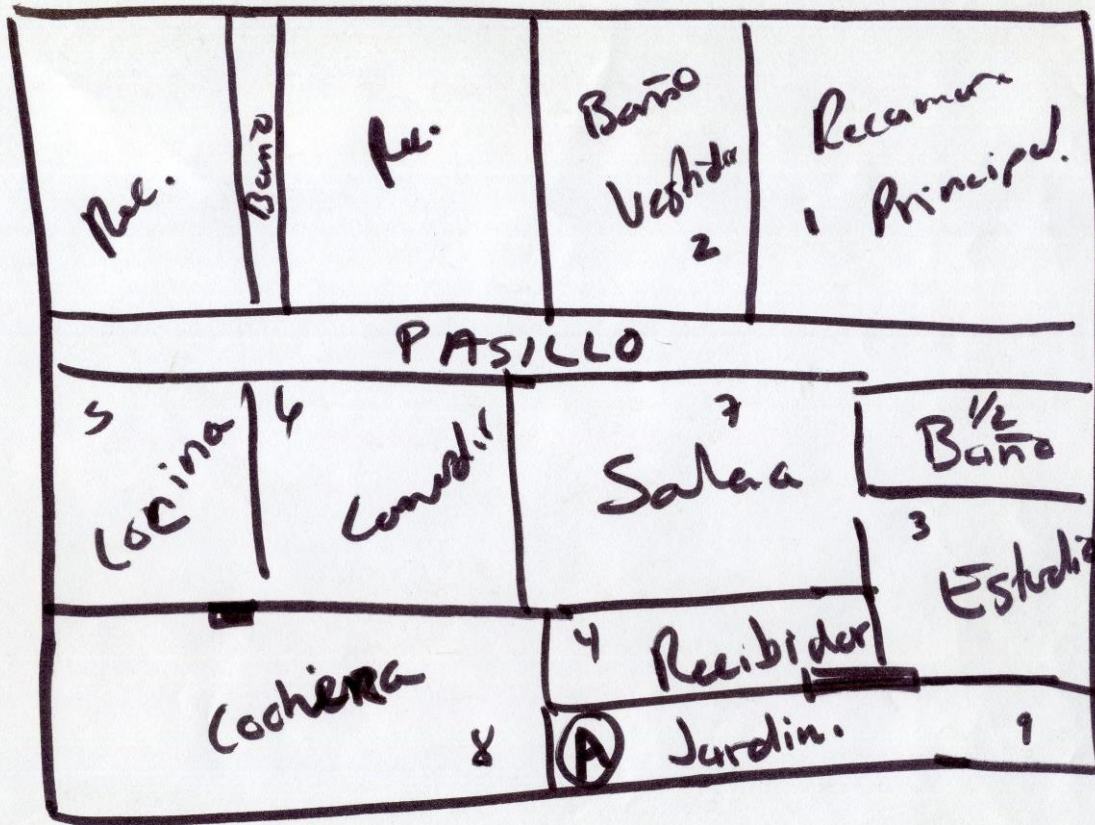 Rec.
Baño
Rec.
Baño
Vestidor
2
Recamara
1 Principal.
PASILLO
5
Cocina
6
Comedor
7
Salaa
1/2
Baño
3
Estudio
4
Recibidor
Cochera
8
A
Jardin.
9